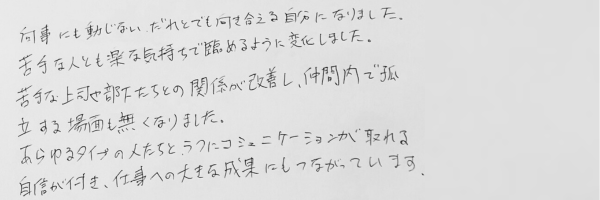 何事にも動じない だれとでも向き合える自分になりました。
苦手な人とも楽な気持ちで臨めるように変化しました。
苦手な上司や部下たちとの関係が改善し、仲間内で孤
立する場面も無くなりました。
あらゆるタイプの人たちとラフにコミュニケーションが取れる
自信が付き、仕事への大きな成果にもつながっています。